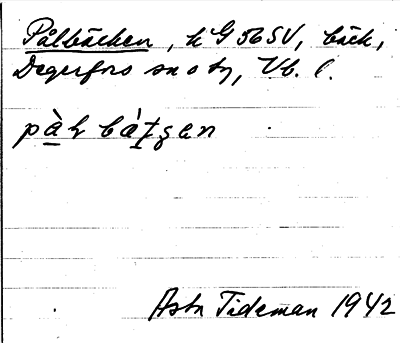 Pålbäcken, k G 56 SV, bäck,
Degerfors sn o tg, Vb. l.
pàḷ bä̀tʂan
Astr Tideman 1942